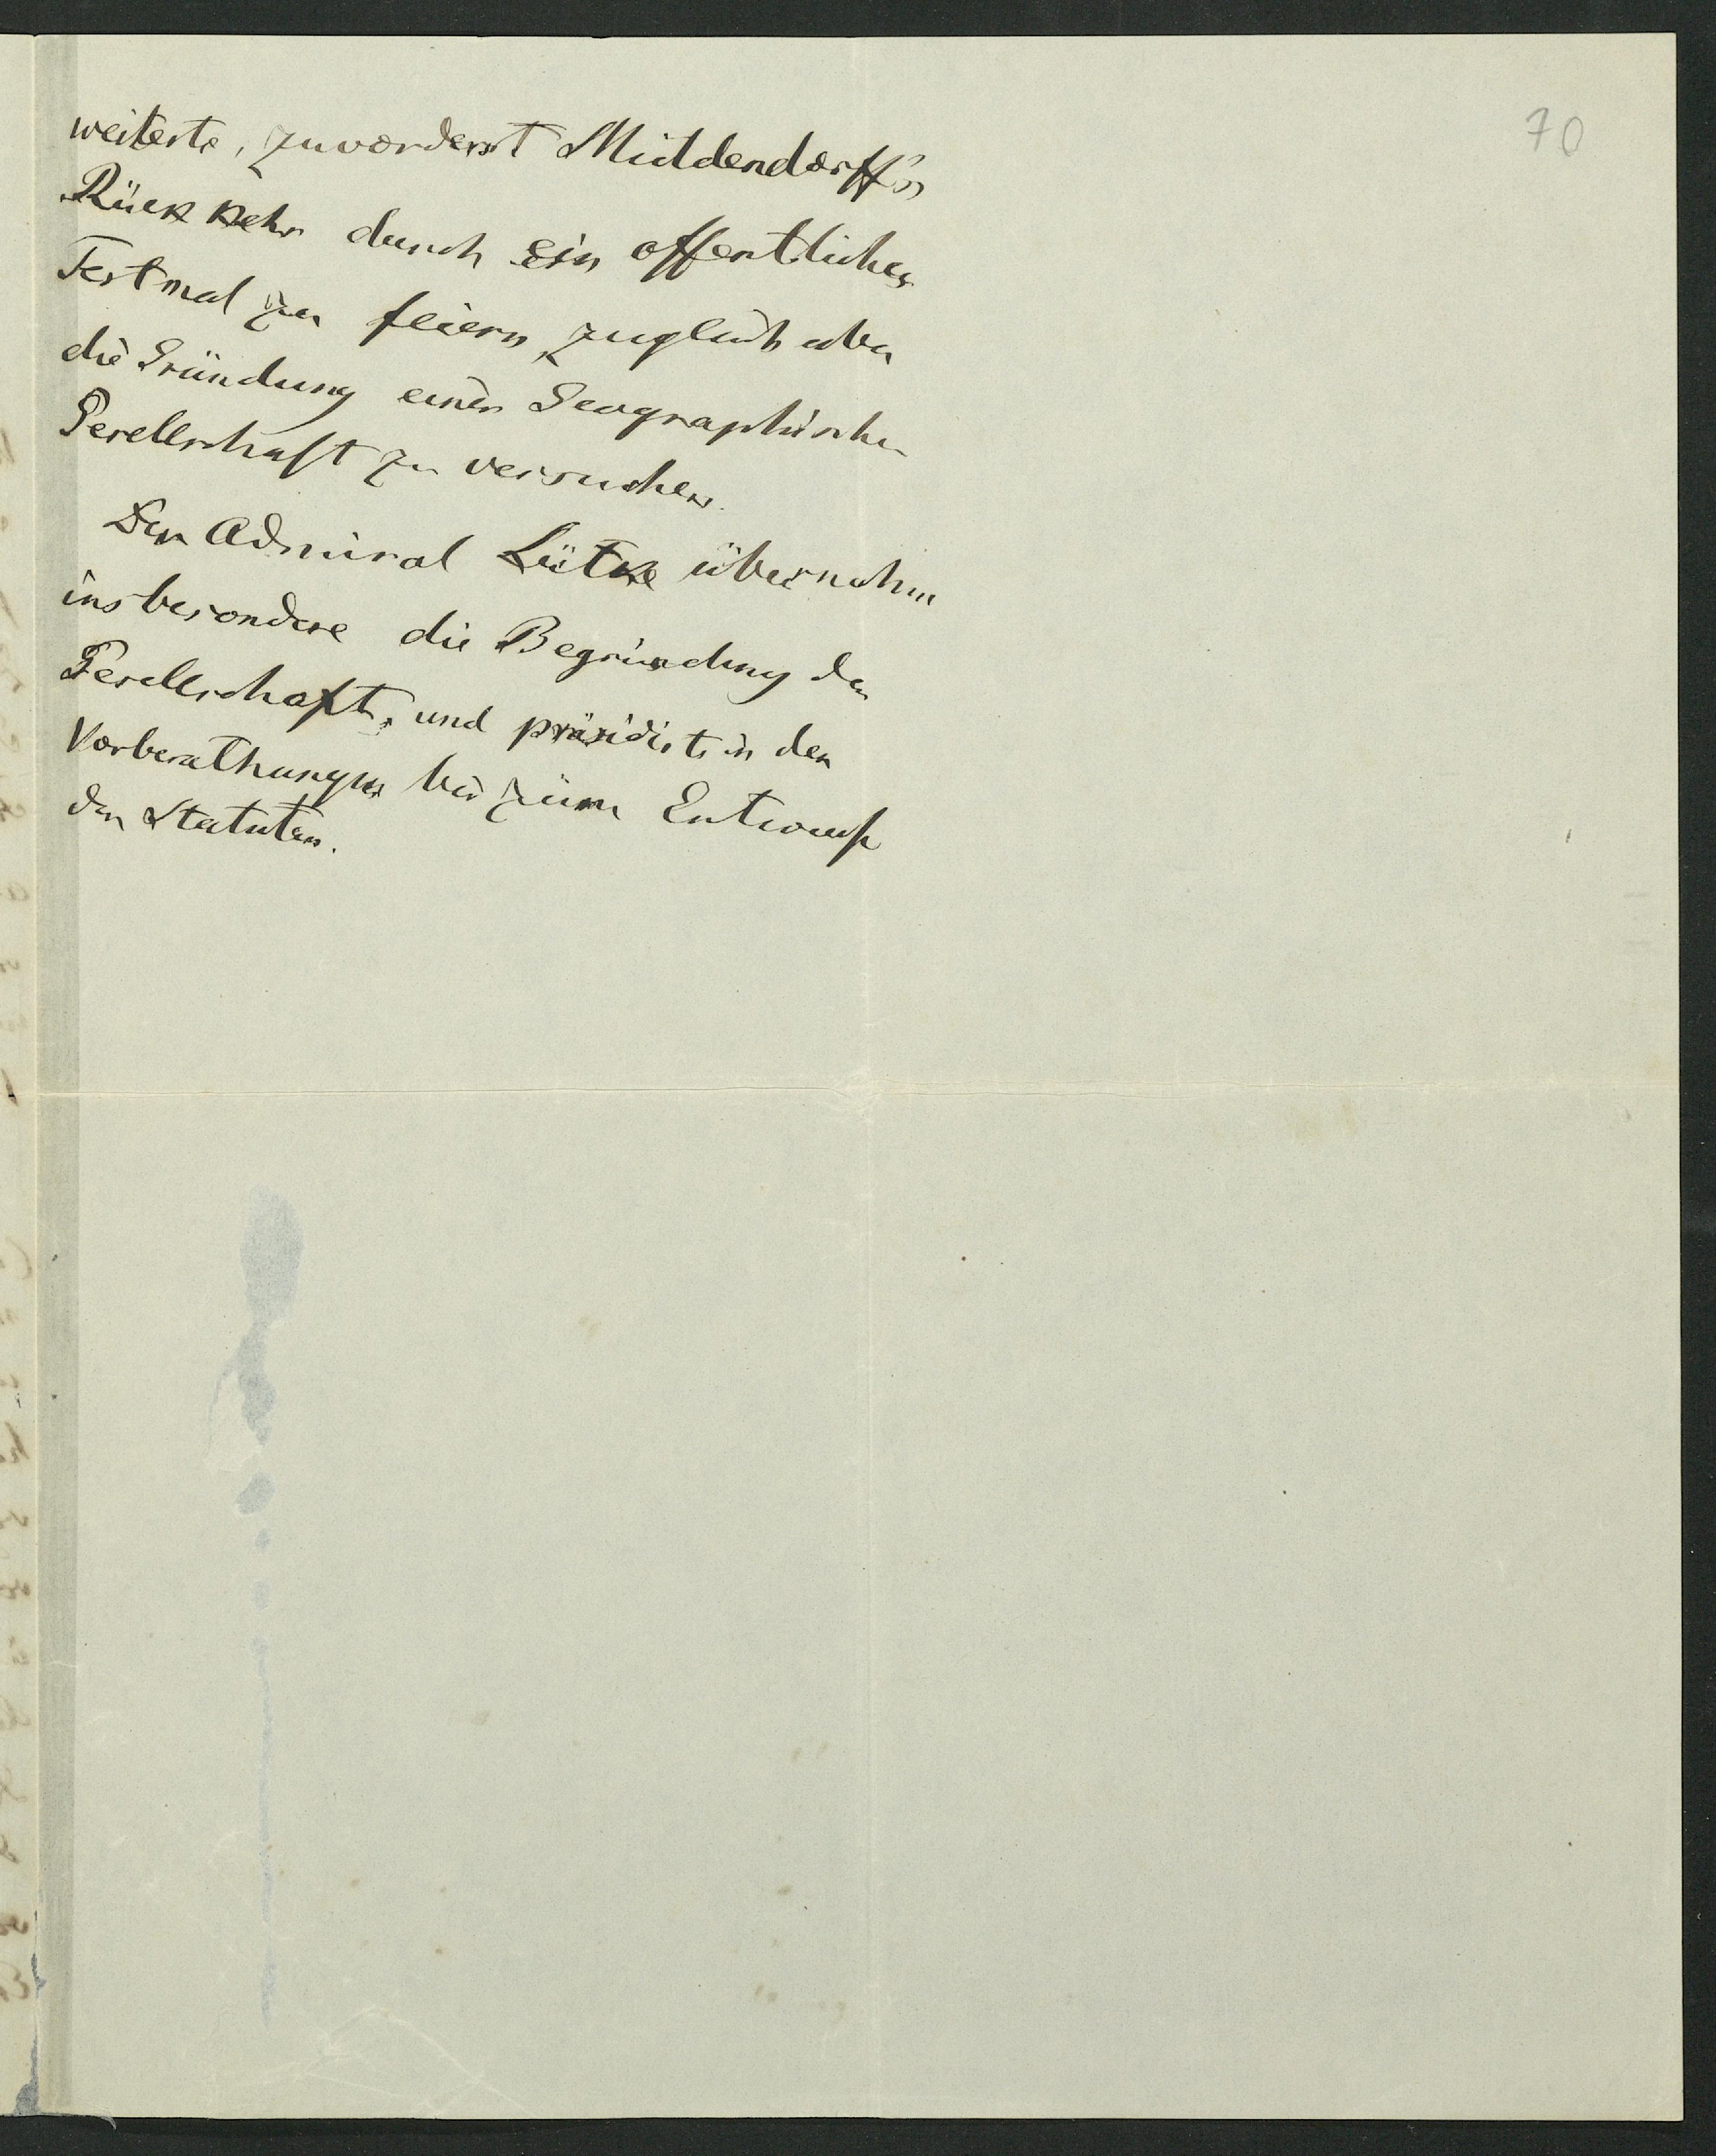 70
weiterte, zuvorderst Middendorff's
Rückkehr durch ein öffentliches
Festmal zu feiern, zugleich aber
die Gründung einer Geographischen
Gesellschaft zu versuchen.
Der Admiral Lütke übernahm
insbesondere die Begründung der
Gesellschaft, und präsidirte in den
Vorberathungen bis zum Entwurf
der Statuten.